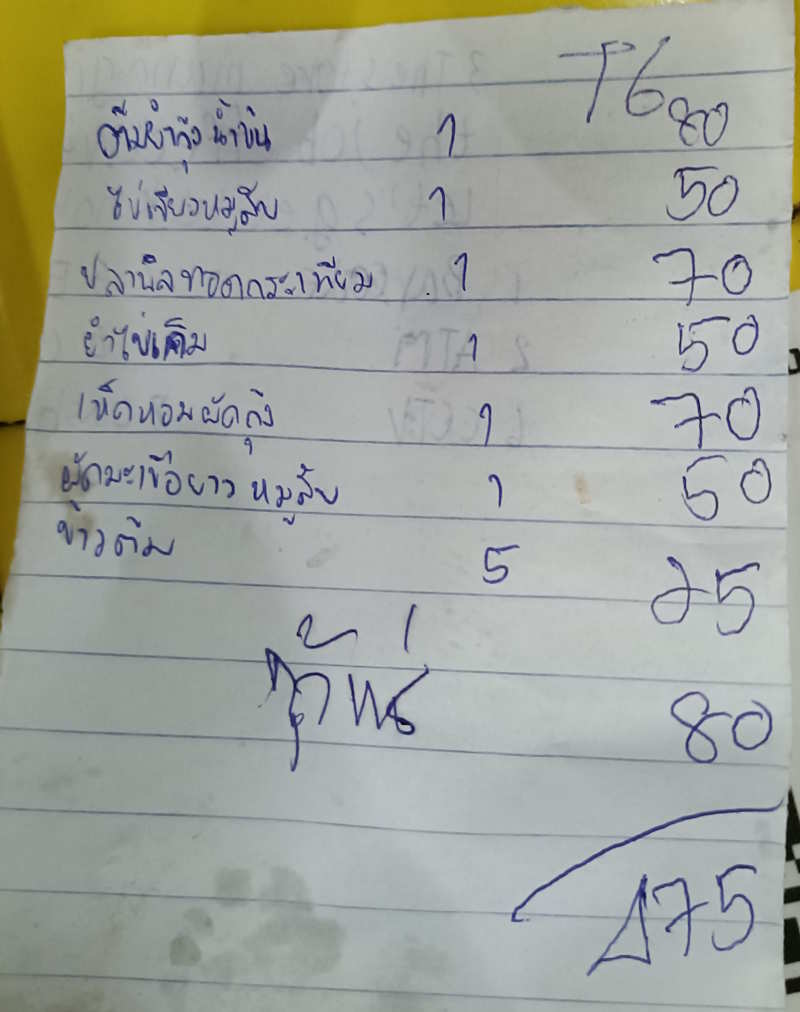 T6
ต้มยำกุ้งน้ำข้น 1 80
ไข่เจียวหมูสับ 1 50
ปลานิลทอดกระเทียม 1 70
ยำไข่เค็ม 1 50
เห็ดหอมผัดกุ้ง 1 70
ผัดมะเขือยาวหมูสับ 1 50
ข้าวต้ม 5 25
80
475